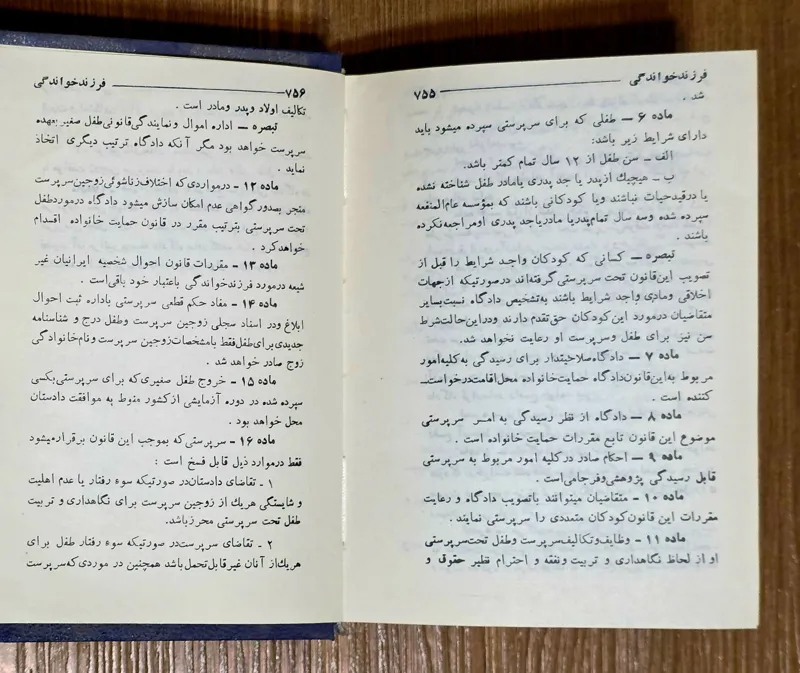 فرزندخواندگی ۷۵۵
شد .
ماده ۶ – طفلی که برای سرپرستی سپرده میشود باید
دارای شرایط زیر باشد:
الف – سن طفل از ۱۲ سال تمام کمتر باشد.
ب – هیچیك ازپدر یا جد پدری یامادر طفل شناخته نشده
یا درقیدحیات نباشند ویا کودکانی باشند که بمؤسسه عام‌المنفعه
سپرده شده وسه سال تمام‌پدریا مادریاجد پدری اومراجعه‌نکرده
باشند .
تبصره – کسانی که کودکان واجد شرایط را قبل از
تصویب این‌قانون تحت سرپرستی گرفته‌اند درصورتیکه ازجهات
اخلاقی ومادی واجد شرایط باشند به‌تشخیص دادگاه نسبت‌بسایر
متقاضیان درمورد این‌کودکان حق‌تقدم دارند ودراین‌حالت‌شرط
سن نیز برای طفل وسرپرست او رعایت نخواهد شد.
ماده ۷ – دادگاه‌صلاحیتدار برای رسیدگی به‌کلیه‌امور
مربوط به‌این‌قانون‌دادگاه حمایت‌خانواده محل‌اقامت‌درخواست‌
کننده است .
ماده ۸ – دادگاه از نظر رسیدگی به‌امر سرپرستی
موضوع این قانون تابع مقررات حمایت خانواده است .
ماده ۹ – احکام صادر درکلیه امور مربوط به سرپرستی
قابل رسیدگی پژوهشی‌وفرجامی‌است .
ماده ۱۰ – متقاضیان میتوانند باتصویب دادگاه و رعایت
مقررات این قانون‌کودکان متعددی را سرپرستی نمایند .
ماده ۱۱ – وظایف‌وتکالیف‌سرپرست وطفل تحت‌سرپرستی
او از لحاظ نگاهداری و تربیت ونفقه و احترام نظیر حقوق و
۷۵۶ فرزندخواندگی
تکالیف اولاد وپدر ومادر است .
تبصره – اداره اموال ونمایندگی‌قانونی‌طفل صغیربعهده
سرپرست خواهد بود مگر آنکه دادگاه ترتیب دیگری اتخاذ
نماید .
ماده ۱۲ – درمواردی‌که اختلاف‌زناشوئی‌زوجین‌سرپرست
منجر بصدورگواهی عدم امکان سازش میشود دادگاه درموردطفل
تحت سرپرستی بترتیب مقرر در قانون حمایت خانواده اقدام
خواهدکرد .
ماده ۱۳ – مقررات قانون احوال شخصیه ایرانیان غیر
شیعه درمورد فرزندخواندگی باعتبار خود باقی‌است .
ماده ۱۴ – مفاد حکم قطعی سرپرستی باداره ثبت احوال
ابلاغ ودر اسناد سجلی زوجین سرپرست وطفل درج و شناسنامه
جدیدی‌برای‌طفل‌فقط بامشخصات‌زوجین سرپرست ونام‌خانوادگی
زوج صادر خواهد شد .
ماده ۱۵ – خروج طفل صغیری که برای سرپرستی‌بکسی
سپرده شده در دوره آزمایشی ازکشور منوط به موافقت دادستان
محل خواهد بود .
ماده ۱۶ – سرپرستی‌که بموجب این قانون برقرارمیشود
فقط درموارد ذیل قابل فسخ است :
۱ – تقاضای دادستان‌در صورتیکه سوء رفتار یا عدم اهلیت
و شایستگی هریك از زوجین سرپرست برای نگاهداری و تربیت
طفل تحت سرپرستی محرزباشد.
۲ – تقاضای سرپرست‌در صورتیکه سوء رفتار طفل برای
هریك‌از آنان غیرقابل‌تحمل‌باشد همچنین در موردی که‌سرپرست